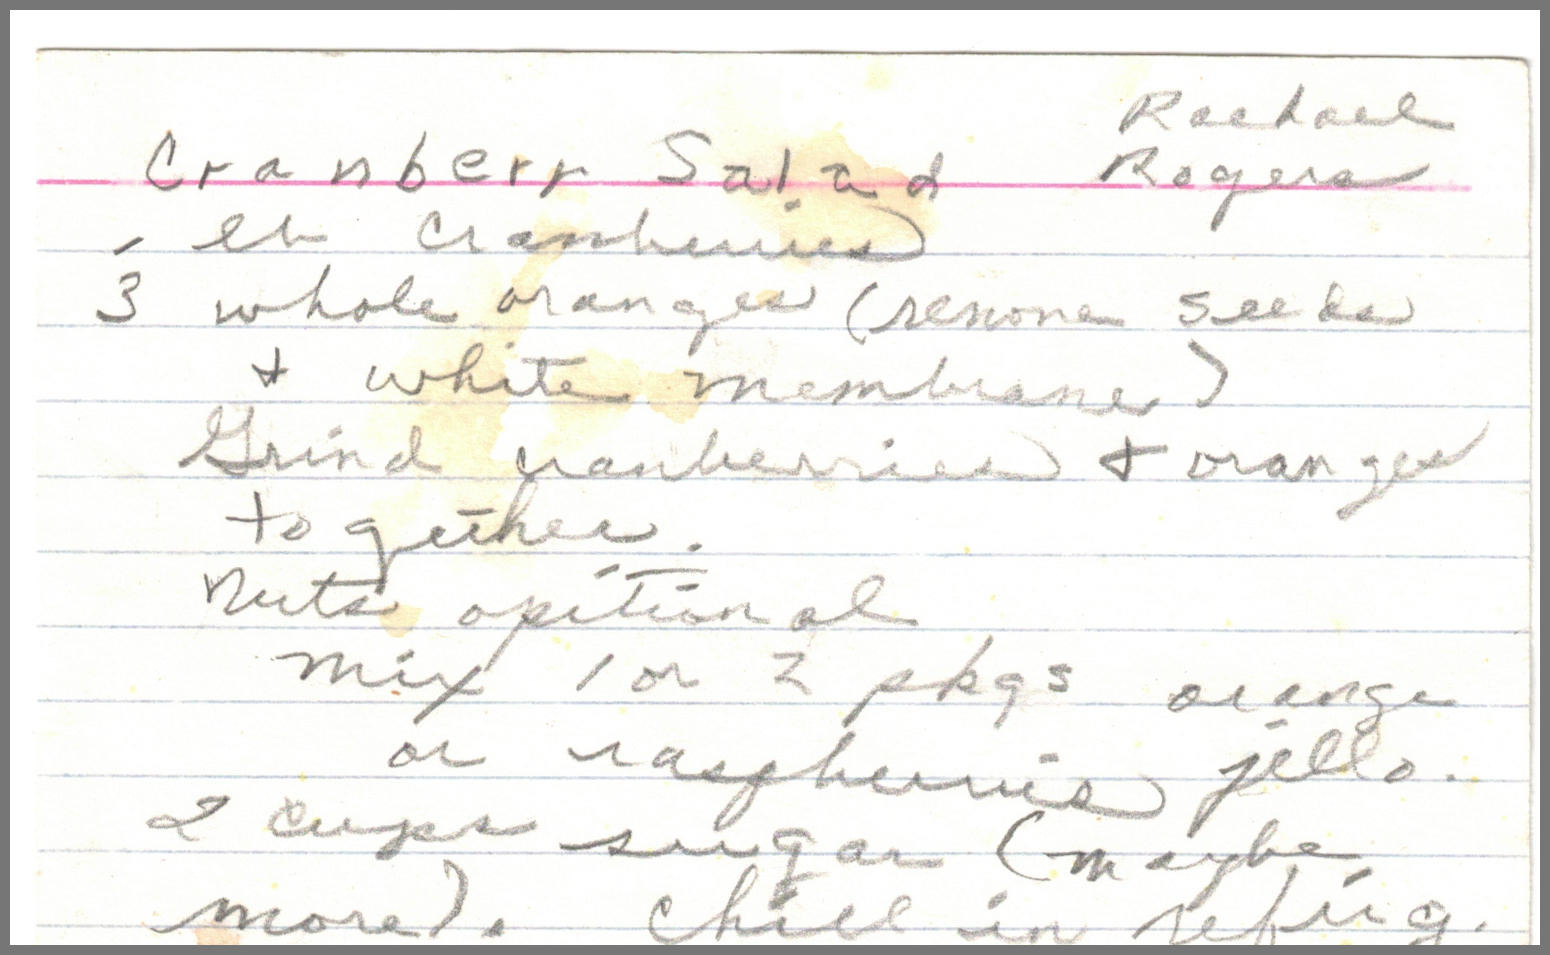 Rachael
Cranberr Salad Rogers
1 lb cranberries
3 whole oranges (remove seeds
+ white membrane)
Grind cranberries + oranges
together.
Nuts opitional
mix 1 or 2 pkgs orange
or raspberries jello.
2 cups sugar (maybe
more). Chill in refrig.